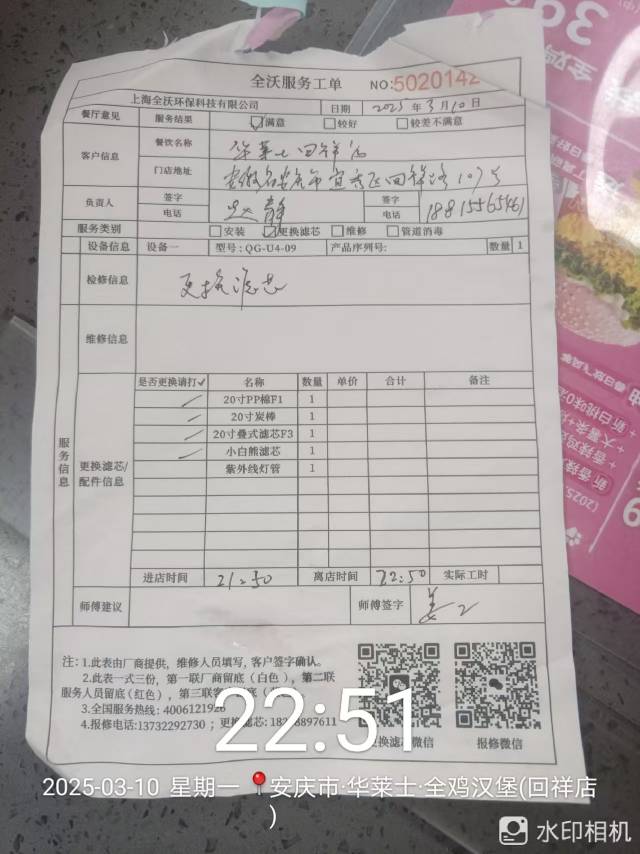 全沃服务工单
NO:5020142
上海全沃环保科技有限公司
日期 2025年3月10日
餐厅意见 服务结果 满意 较好 较差不满意
客户信息 餐饮名称 华莱士回祥店
门店地址 安徽省安庆市宜秀区回祥路107号
负责人 签字 静 签字
电话 电话 18815565461
服务类别 安装 更换滤芯 维修 管道消毒
设备信息 设备一 型号:QG-U4-09 产品序列号: 数量 1
检修信息 更换滤芯
维修信息
服务信息
更换滤芯/配件信息
是否更换请打✓ 名称 数量 单价 合计 备注
20寸PP棉F1 1
20寸炭棒 1
20寸叠式滤芯F3 1
小白熊滤芯 1
紫外线灯管 1
进店时间 21:50 离店时间 22:50 实际工时
师傅建议 师傅签字 姜
注:1.此表由厂商提供,维修人员填写,客户签字确认。
2.此表一式三份,第一联厂商留底(白色),第二联
服务人员留底(红色),第三联客
3.全国服务热线:4006121926
4.报修电话:13732292730;更换滤芯:18
更换滤芯微信 报修微信
22:51
2025-03-10 星期一 安庆市·华莱士·全鸡汉堡(回祥店
)
水印相机